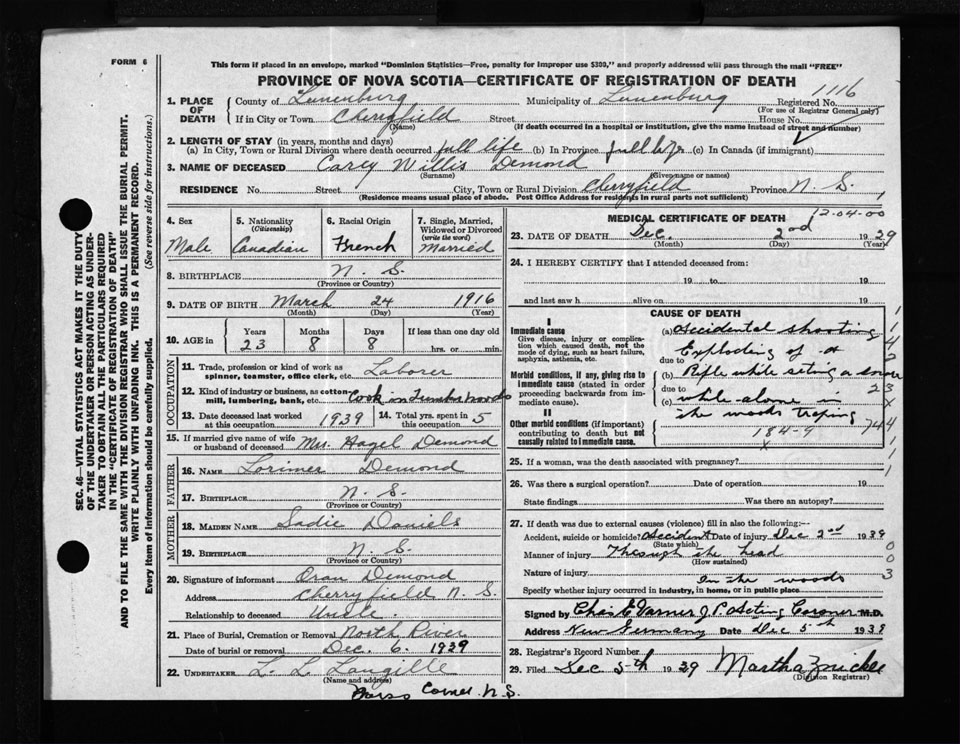 FORM 6
This form if placed in an envelope, marked "Dominion Statistics—Free, penalty for improper use $300," and properly addressed will pass through the mail "FREE"
PROVINCE OF NOVA SCOTIA—CERTIFICATE OF REGISTRATION OF DEATH
1116
1. PLACE OF DEATH { County of Lunenburg Municipality of Lunenburg Registered No.
(For use of Registrar General only)
If in City or Town Cherryfield Street House No.
(Name) (If death occurred in a hospital or institution, give the name instead of street and number)
2. LENGTH OF STAY (in years, months and days)
(a) In City, Town or Rural Division where death occurred full life (b) In Province full life (c) In Canada (if immigrant)
3. NAME OF DECEASED Carey Willis Demond
(Surname) (Given name or names)
RESIDENCE No. Street City, Town or Rural Division Cherryfield Province N. S.
(Residence means usual place of abode. Post Office Address for residents in rural parts not sufficient)
4. Sex 5. Nationality 6. Racial Origin 7. Single, Married, Widowed or Divorced
(Citizenship) (write the word)
Male Canadian French Married
8. BIRTHPLACE N. S.
(Province or Country)
9. DATE OF BIRTH March 24 1916
(Month) (Day) (Year)
10. AGE in Years Months Days If less than one day old
23 8 8 hrs. or min.
OCCUPATION
11. Trade, profession or kind of work as spinner, teamster, office clerk, etc. Laborer
12. Kind of industry or business, as cotton-mill, lumbering, bank, etc. Cook in Lumber woods
13. Date deceased last worked at this occupation 1939 14. Total yrs. spent in this occupation 5
15. If married give name of wife or husband of deceased Mrs. Hazel Demond
FATHER
16. NAME Lorimer Demond
17. BIRTHPLACE N. S.
(Province or Country)
MOTHER
18. MAIDEN NAME Sadie Daniels
19. BIRTHPLACE N. S.
(Province or Country)
20. Signature of informant Oran Demond
Address Cherryfield N. S.
Relationship to deceased Uncle.
21. Place of Burial, Cremation or Removal North River
Date of burial or removal Dec. 6. 1939
22. UNDERTAKER L. L. Langille
(Name and address)
Corner N. S.
MEDICAL CERTIFICATE OF DEATH
12-04-00
23. DATE OF DEATH Dec. 2nd 1939
(Month) (Day) (Year)
24. I HEREBY CERTIFY that I attended deceased from:
19 to 19
and last saw h alive on 19
CAUSE OF DEATH
I
Immediate cause (a) Accidental shooting
Give disease, injury or complication which caused death, not the mode of dying, such as heart failure, asphyxia, asthenia, etc.
due to Exploding of a
Morbid conditions, if any, giving rise to immediate cause (stated in order proceeding backwards from immediate cause).
(b) Rifle while seting a snare
due to
(c) while alone in
II
the woods traping
Other morbid conditions (if important) contributing to death but not causally related to immediate cause.
184-9
25. If a woman, was the death associated with pregnancy?
26. Was there a surgical operation? Date of operation 19
State findings Was there an autopsy?
27. If death was due to external causes (violence) fill in also the following:—
Accident, suicide or homicide? Accident Date of injury Dec 2nd 1939
(State which)
Manner of injury Through the head
(How sustained)
Nature of injury In the woods
Specify whether injury occurred in industry, in home, or in public place.
Signed by Chas E Varner J P Acting Coroner M.D.
Address New Germany Date Dec 5th 1939
28. Registrar's Record Number
29. Filed Dec 5th 1939 Martha Zwicker
(Division Registrar)
SEC. 46—VITAL STATISTICS ACT MAKES IT THE DUTY
OF THE UNDERTAKER OR PERSON ACTING AS UNDER-
TAKER TO OBTAIN ALL THE PARTICULARS REQUIRED
IN THE "CERTIFICATE OF REGISTRATION OF DEATH"
AND TO FILE THE SAME WITH THE DIVISION REGISTRAR WHO SHALL ISSUE THE BURIAL PERMIT.
WRITE PLAINLY WITH UNFADING INK. THIS IS A PERMANENT RECORD.
Every item of information should be carefully supplied. (See reverse side for instructions.)